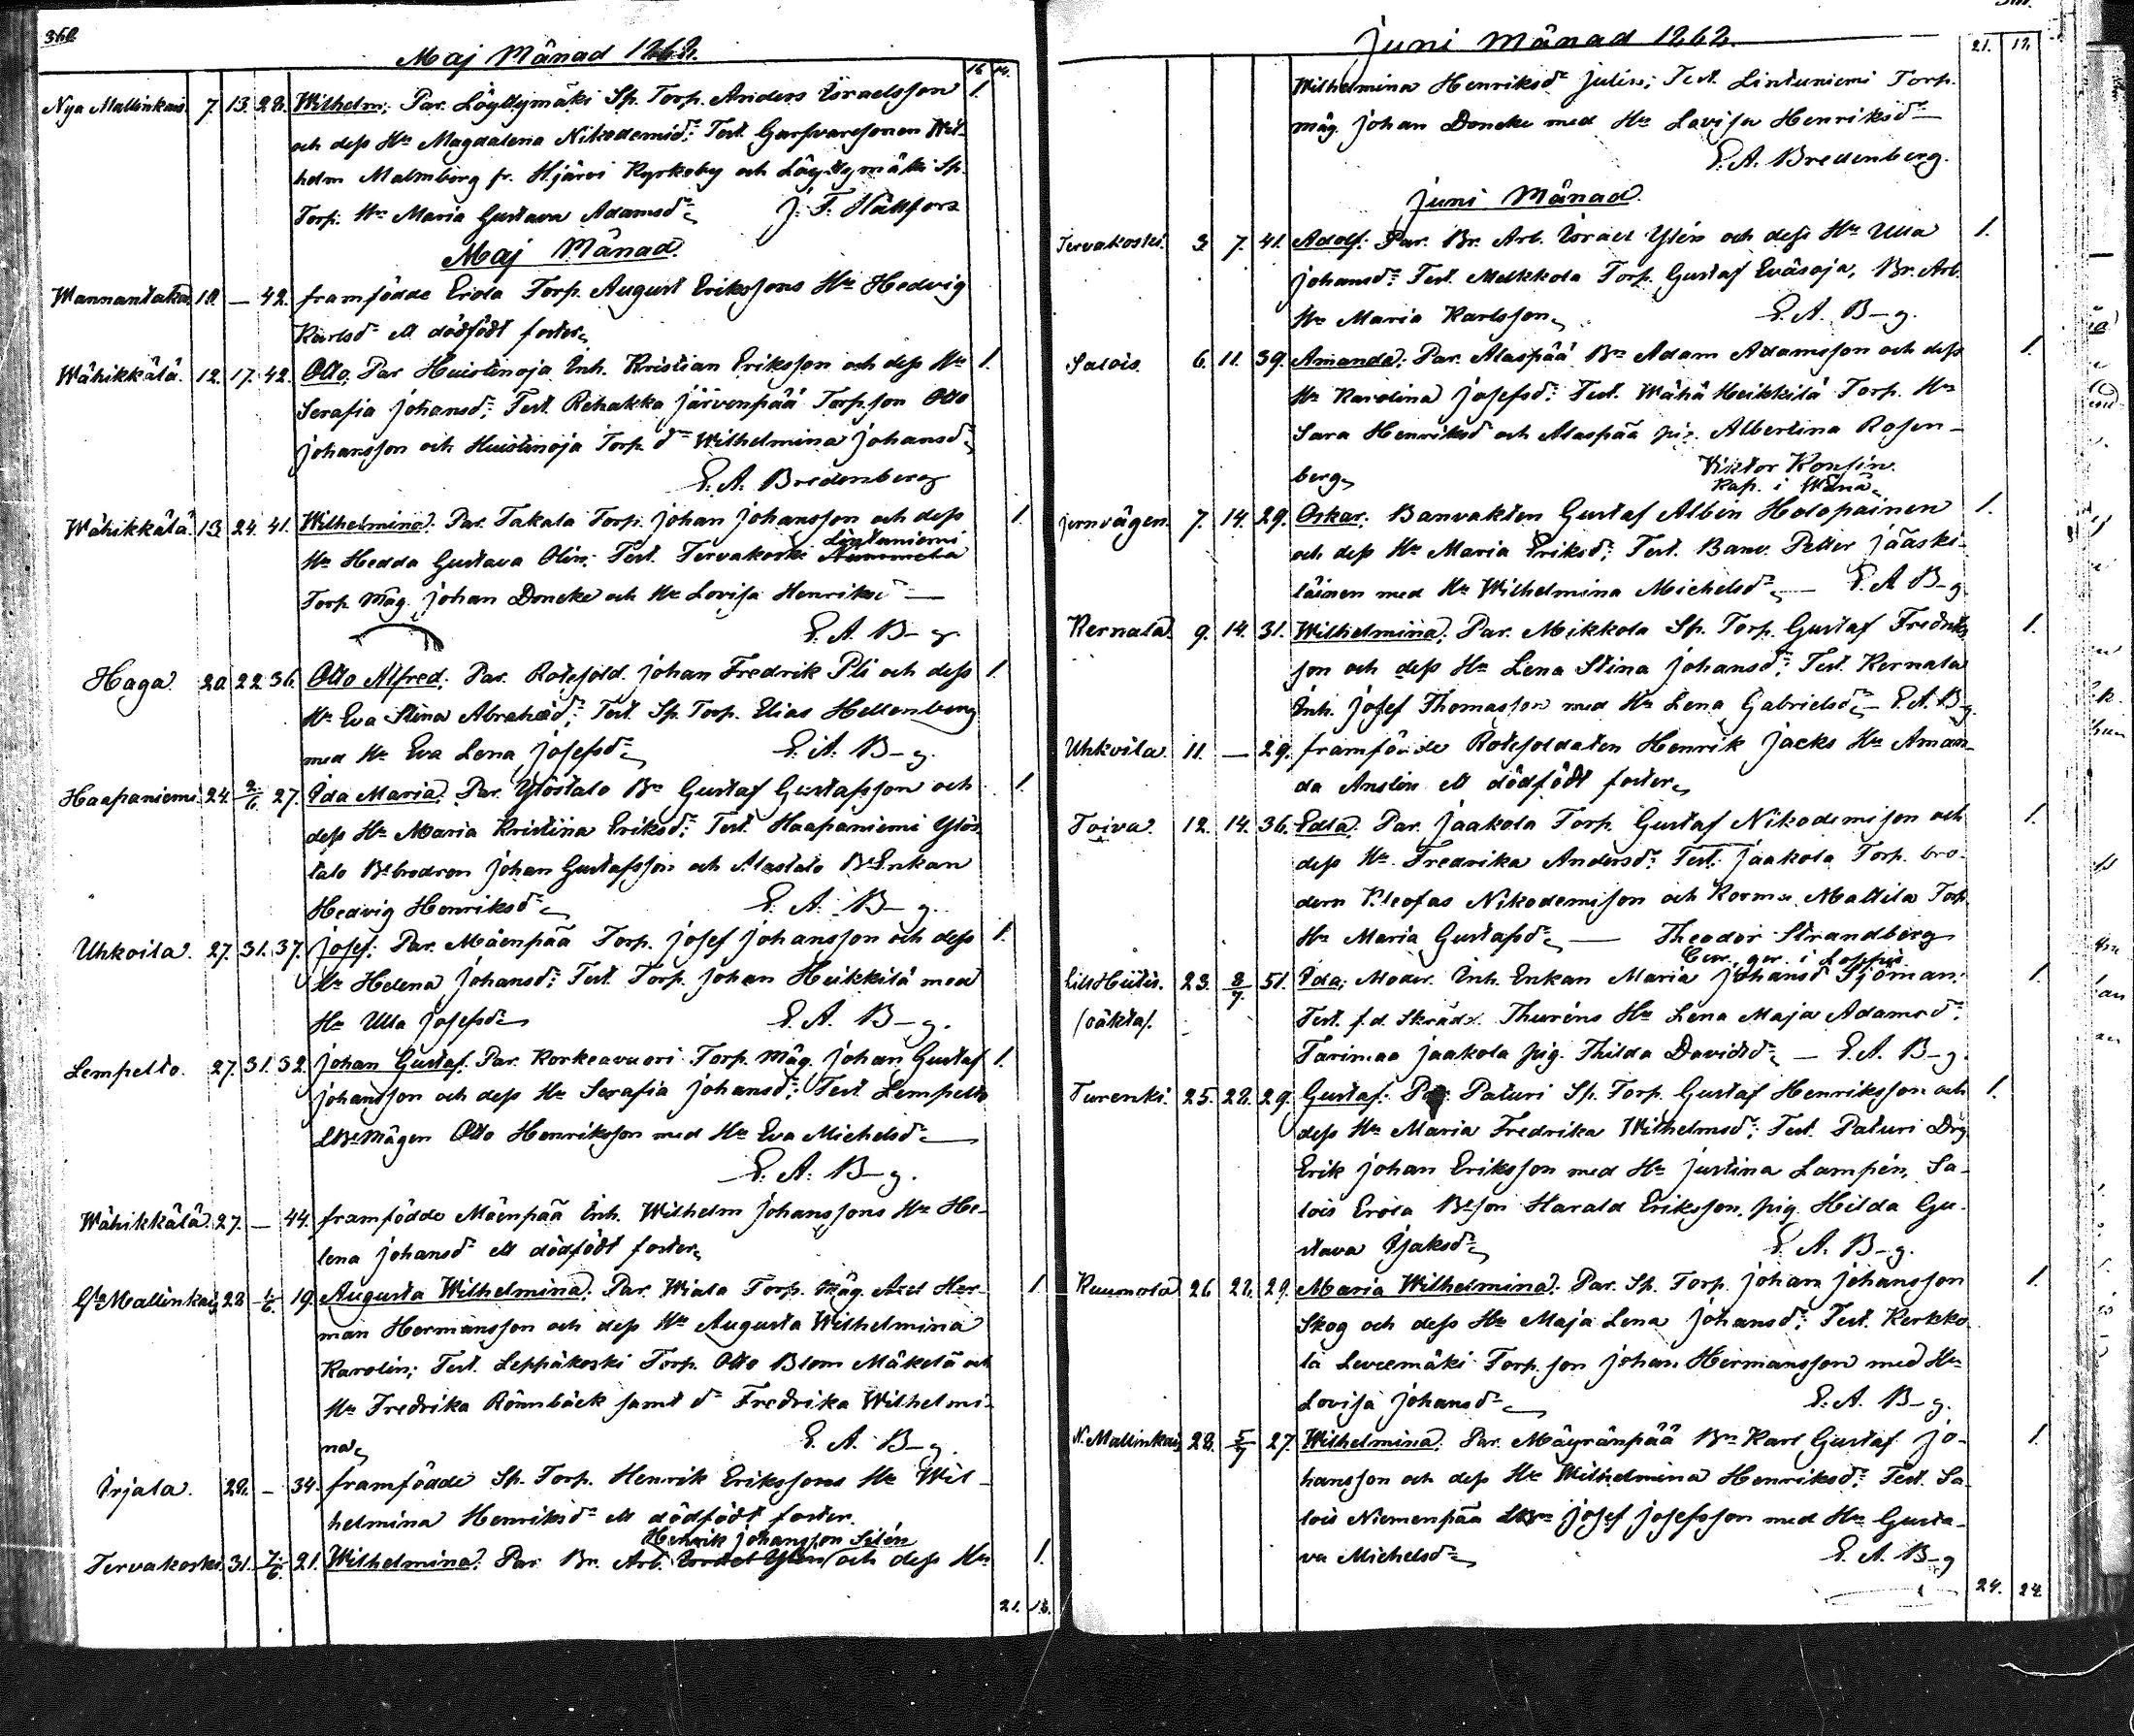 360.
Maj Månad 1862.
16 14.
Nya Mallinkais. 7. 13. 28. Wilhelm; Par. Löyttymäki Sp. Torp. Anders Israelsson 1.
och dess Hu Magdalena Nikodemid:r Test. Garfvaresonen Wil-
helm Malmberg fr. Hjärvi Kyrkoby och Löyttymäki Sp.
Torp. Hu Maria Gustava Adamsd:r J. F. Hällfors
Maj Månad.
Wannantaka. 10. — 42. framfödde Erola Torp. August Erikssons Hu Hedvig
Karlsd:r ett dödfödt foster.
Wähikkälä. 12. 17. 42. Otto; Par. Huistinoja Inh. Kristian Eriksson och dess Hu 1.
Serafia Johansd:r; Test. Rehakka Järvenpää Torp.son Otto
Johansson och Huistinoja Torp. d:r Wilhelmina Johansd:r
E. A. Bredenberg
Wähikkälä. 13. 24. 41. Wilhelmina; Par. Takala Torp. Johan Johansson och dess 1.
Lintuniemi
Hu Hedda Gustava Olin; Test. Tervakoski Nummela
Torp. måg. Johan Doncke och Hu Lovisa Henriksd:r —
E. A. B–g.
Haga. 20. 22. 36. Otto Alfred; Par. Rotesold. Johan Fredrik Pli och dess 1.
Hu Eva Stina Abrahad:r; Test. Sp. Torp. Elias Hellenberg
med Hu Eva Lena Josefsd:r E. A. B–g.
Haapaniemi. 24. 2/6. 27. Ida Maria; Par. Ylöstalo Bn Gustaf Gustafsson och 1.
dess Hu Maria Kristina Eriksd:r; Test. Haapaniemi Ylös-
talo Bebrodren Johan Gustafsson och Alastalo Be Enkan
Hedvig Henriksd:r E. A. B–g.
Uhkoila. 27. 31. 37. Josef; Par. Mäenpää Torp. Josef Johansson och dess 1.
Hu Helena Johansd:r; Test. Torp. Johan Heikkilä med
Hu Ulla Josefsd:r E. A. B–g.
Lempelto. 27. 31. 32. Johan Gustaf; Par. Korkeavuori Torp. måg. Johan Gustaf 1.
Johansson och dess Hu Serafia Johansd:r; Test. Lempelto
LBe mågen Otto Henriksson med Hu Eva Michelsd:r —
E. A. B–g.
Wähikkälä. 27. — 44. framfödde Mäenpää Inh. Wilhelm Johanssons Hu He-
lena Johansd:r ett dödfödt foster.
Gla Mallinkais 28 1/6. 19. Augusta Wilhelmina; Par. Wiala Torp. måg. Axel Her- 1.
man Hermansson och dess Hu Augusta Wilhelmina
Karolin; Test. Leppäkoski Torp. Otto Blom Mäkelä och
Hu Fredrika Rönnbäck samt d:r Fredrika Wilhelmi-
na. E. A. B–g.
Irjala. 28. — 34. framfödde Sp. Torp. Henrik Erikssons Hu Wil-
helmina Henriksd:r ett dödfödt foster.
Henrik Johansson Silén
Tervakoski. 31. 7/6. 21. Wilhelmina; Par. Br. Arb. Israel Ylén och dess Hu 1.
21. 18.
Juni Månad 1862.
21. 17.
Wilhelmina Henriksd:r Julin; Test. Lintuniemi Torp.
måg. Johan Doncke med Hu Lovisa Henriksd:r —
E. A. Bredenberg.
Juni Månad.
Tervakoski. 3. 7. 41. Adolf; Par. Br. Arb. Israel Ylén och dess Hu Ulla 1.
Johansd:r Test. Melkkola Torp. Gustaf Eväsoja, Br. Arb.
Hu Maria Karlsson. E. A. B–g.
Salois. 6. 11. 39. Amanda; Par. Alaspää Bn Adam Adamsson och dess 1.
Hu Karolina Josefsd:r Test. Wähä Heikkilä Torp. Hu
Sara Henriksd och Alaspää pig. Albertina Rosen-
berg. Viktor Konsin.
Kap. i Wånå.
Jernvägen. 7. 14. 29. Oskar; Banvakten Gustaf Albin Holopainen 1.
och dess Hu Maria Eriksd:r Test. Banv. Petter Jääski-
läinen med Hu Wilhelmina Michelsd:r — E. A. B–g.
Kernala. 9. 14. 31. Wilhelmina; Par. Mikkola Sp. Torp. Gustaf Fredriks- 1.
son och dess Hu Lena Stina Johansd:r Test. Kernala
Inh. Josef Thomasson med Hu Lena Gabrielsd:r — E. A. B–g.
Uhkoila. 11. — 29. framfödde Rotesoldaten Henrik Jacks Hu Aman-
da Anslin ett dödfödt foster.
Toiva. 12. 14. 36. Edla; Par. Jaakola Torp. Gustaf Nikodemison och 1.
dess Hu Fredrika Andersd:r Test. Jaakola Torp. bro-
dern Kleofas Nikodemison och Kormu Mattila Torp.
Hu Maria Gustafsd:r — Theodor Strandberg
i Loppis
Lill Hiitis. 23. 8/7. 51. Ida; Moder. Inh. Enkan Maria Johansd Sjöman: 1.
(oäkta). Test. f.d. Skrädd. Thuréns Hu Lena Maja Adamsd:r,
Tarimaa Jaakola pig. Thilda Davidsd:r — E. A. B–g.
Turenki. 25. 28. 29. Gustaf; Par. Paturi Sp. Torp. Gustaf Henriksson och 1.
dess Hu Maria Fredrika Wilhelmsd:r; Test. Paturi Drg.
Erik Johan Eriksson med Hu Justina Lampén, Sa-
lois Erola Beson Harald Eriksson, pig. Hilda Gu-
stava Isaksd:r E. A. B–g.
Kuumola 26 28. 29. Maria Wilhelmina; Par. Sp. Torp. Johan Johansson 1.
Skog och dess Hu Maja Lena Johansd:r; Test. Kerkko-
la Leveemäki Torp. son Johan Hermansson med Hu
Lovisa Johansd:r E. A. B–g.
N. Mallinkais 28. 5/7 27. Wilhelmina; Par. Mäyränpää Bn Karl Gustaf Jo- 1.
hansson och dess Hu Wilhelmina Henriksd:r Test. Sa-
lois Niemenpää LBn Josef Josefsson med Hu Gusta-
va Michelsd:r E. A. B–g
24. 24.